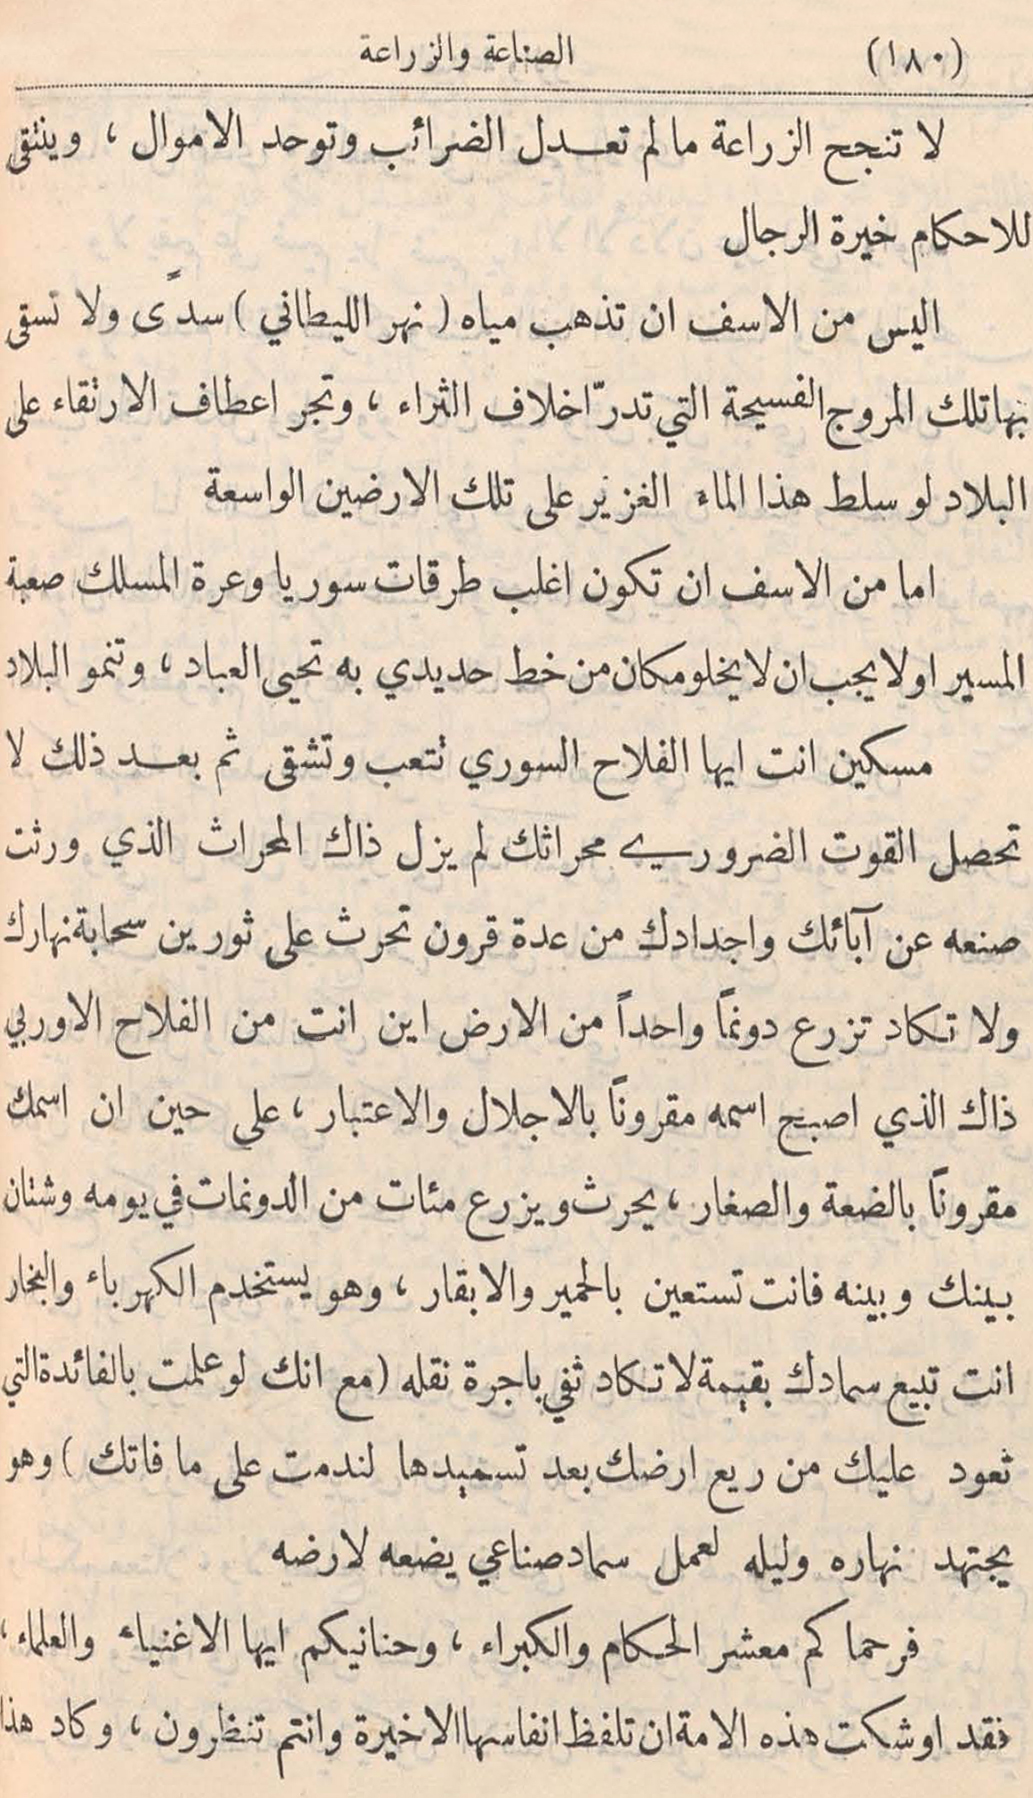 (١٨٠) الصناعة والزراعة
لا تنجح الزراعة مالم تعدل الضرائب وتوحد الاموال ، وينتقى
للاحكام خيرة الرجال
اليس من الاسف ان تذهب مياه ( نهر الليطاني ) سدًى ولا تسقى
بهاتلك المروج الفسيحة التي تدرّ اخلاف الثراء ، وتجر اعطاف الارتقاء على
البلاد لو سلط هذا الماء الغزير على تلك الارضين الواسعة
اما من الاسف ان تكون اغلب طرقات سوريا وعرة المسلك صعبة
المسير اولا يجب ان لا يخلو مكان من خط حديدي به تحيى العباد ، وتنمو البلاد
مسكين انت ايها الفلاح السوري تتعب وتشقى ثم بعد ذلك لا
تحصل القوت الضروري محراثك لم يزل ذاك المحراث الذي ورثت
صنعه عن آبائك واجدادك من عدة قرون تحرث على ثورين سحابة نهارك
ولا تكاد تزرع دونمًا واحداً من الارض اين انت من الفلاح الاوربي
ذاك الذي اصبح اسمه مقرونًا بالاجلال والاعتبار ، على حين ان اسمك
مقرونًا بالضعة والصغار ، يحرث ويزرع مئات من الدونمات في يومه وشتان
بينك وبينه فانت تستعين بالحمير والابقار ، وهو يستخدم الكهرباء والبخار
انت تبيع سمادك بقيمة لا تكاد تفي باجرة نقله (مع انك لو علمت بالفائدة التي
تعود عليك من ريع ارضك بعد تسميدها لندمت على ما فاتك ) وهو
يجتهد نهاره وليله لعمل سماد صناعي يضعه لارضه
فرحماكم معشر الحكام والكبراء ، وحنانيكم ايها الاغنياء والعلماء ،
فقد اوشكت هذه الامة ان تلفظ انفاسها الاخيرة وانتم تنظرون ، وكاد هذا